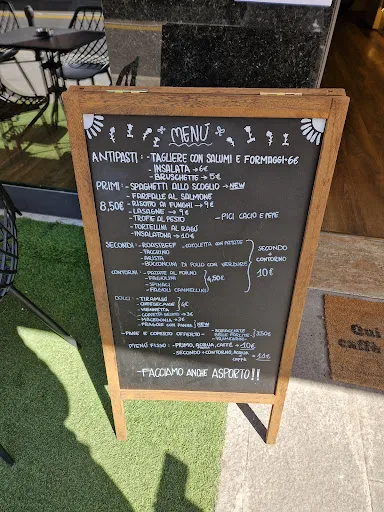 MENÙ
ANTIPASTI: -TAGLIERE CON SALUMI E FORMAGGI-6€
-INSALATA →6€
-BRUSCHETTE →5€
PRIMI: -SPAGHETTI ALLO SCOGLIO →NEW
-FARFALLE AL SALMONE
8,50€ -RISOTTO AI FUNGHI →9€
-LASAGNE →9€
-TROFIE AL PESTO -PICI CACIO E PEPE
-TORTELLINI AL RAGÙ
-INSALATONA →10€
SECONDI: -ROASTBEEF -COTOLETTA CON PATATE
-TACCHINO
-ARISTA
-BOCCONCINI DI POLLO CON VERDURE
SECONDO + CONTORNO 10€
CONTORNI: -PATATE AL FORNO
-FAGIOLINI
-SPINACI
-FAGIOLI CANNELLINI
4,50€
DOLCI: -TIRAMISÙ
-CHEESECAKE
4€
-MACEDONIA →3€
-FRAGOLE CON PANNA NEW
-PANE E COPERTO OFFERTO-
3,50€
MENÙ FISSO: -PRIMO, ACQUA, CAFFÈ →10€
-SECONDO+CONTORNO, ACQUA CAFFÈ →11€
-FACCIAMO ANCHE ASPORTO!!
Qui
caffè